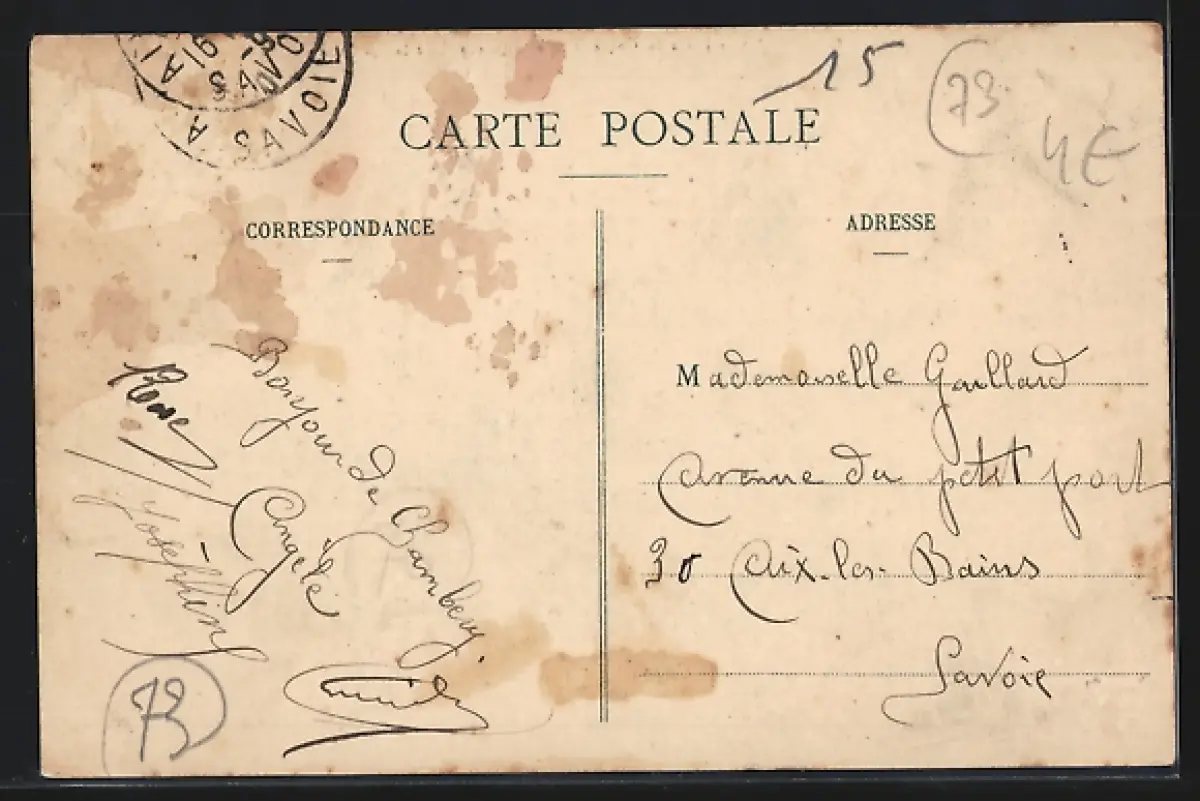 SAVOIE
15
73
4€
CARTE POSTALE
CORRESPONDANCE
ADRESSE
Bonjour de Chambery
Rose
Angèle
Joséphine
73
Mademoiselle Gaillard
Avenue du petit port
30 Aix-les-Bains
Savoie